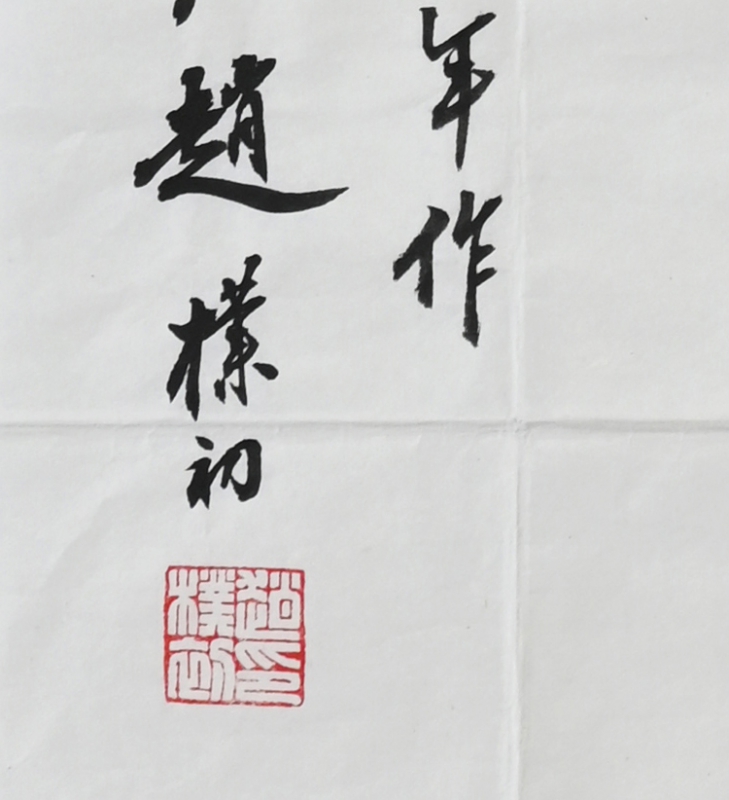 年作
趙樸初
趙印
樸初